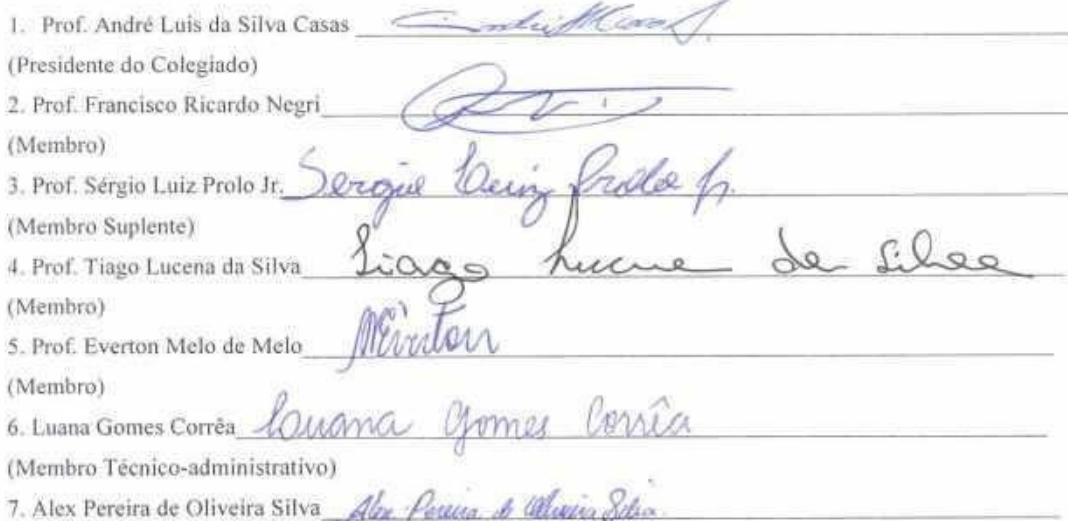 1. Prof. André Luis da Silva Casas
(Presidente do Colegiado)
2. Prof. Francisco Ricardo Negri
(Membro)
3. Prof. Sérgio Luiz Prolo Jr. Sergio Luiz Prolo Jr.
(Membro Suplente)
4. Prof. Tiago Lucena da Silva Tiago Lucena da Silva
(Membro)
5. Prof. Everton Melo de Melo
(Membro)
6. Luana Gomes Corrêa Luana Gomes Corrêa
(Membro Técnico-administrativo)
7. Alex Pereira de Oliveira Silva Alex Pereira de Oliveira Silva